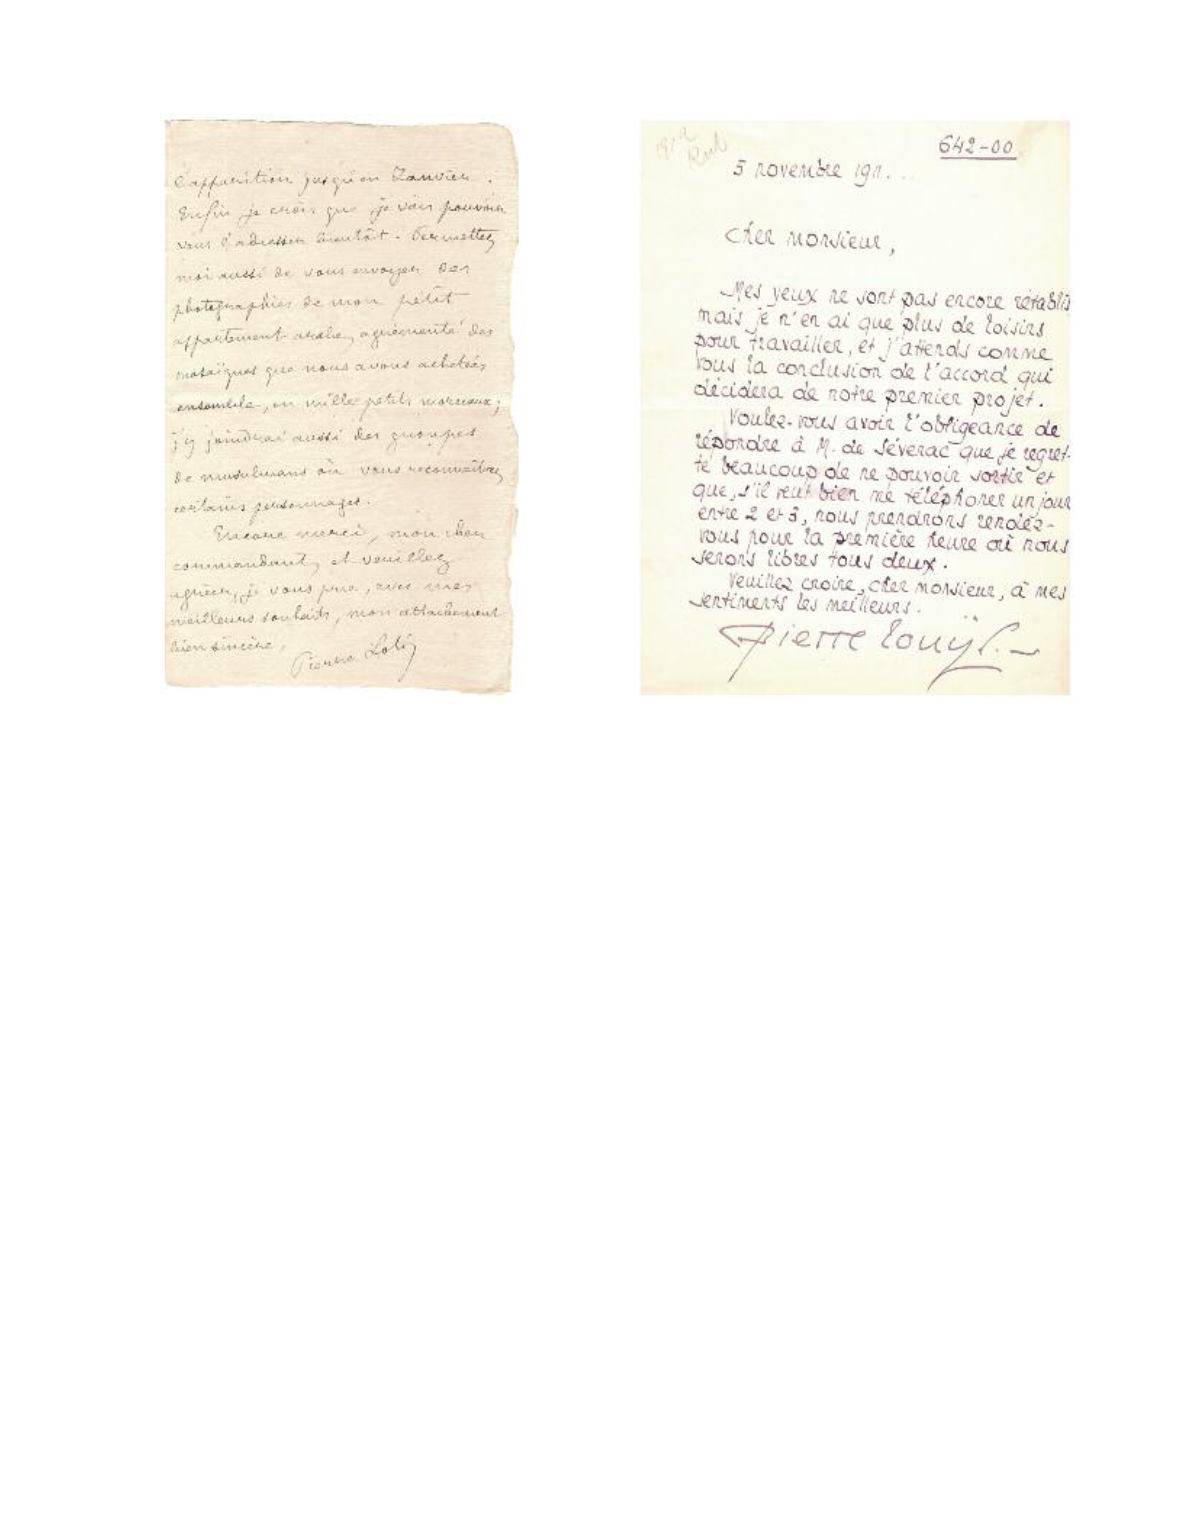 l'apparition jusqu'en Janvier.
Enfin je crois que je vais pouvoir
vous l'adresser bientôt. Permettez
moi aussi de vous envoyer des
photographies de mon petit
appartement arabe, agrémenté des
mosaïques que nous avons achetées
ensemble, en mille petits morceaux;
j'y joindrai aussi des groupes
de musulmans où vous reconnaîtrez
certains personnages.
Encore merci, mon cher
commandant, et veuillez
agréer, je vous prie, avec mes
meilleurs souhaits, mon attachement
bien sincère,
Pierre Loti
642-00
5 novembre 191...
Cher Monsieur,
Mes yeux ne sont pas encore rétablis
mais je n'en ai que plus de loisirs
pour travailler, et j'attends comme
vous la conclusion de l'accord qui
décidera de notre premier projet.
Voulez-vous avoir l'obligeance de
répondre à M. de Séverac que je regret-
te beaucoup de ne pouvoir sortir et
que, s'il veut bien me téléphoner un jour
entre 2 et 3, nous prendrons rendez-
vous pour la première heure où nous
serons libres tous deux.
Veuillez croire, cher Monsieur, à mes
sentiments les meilleurs.
Pierre Louÿs.